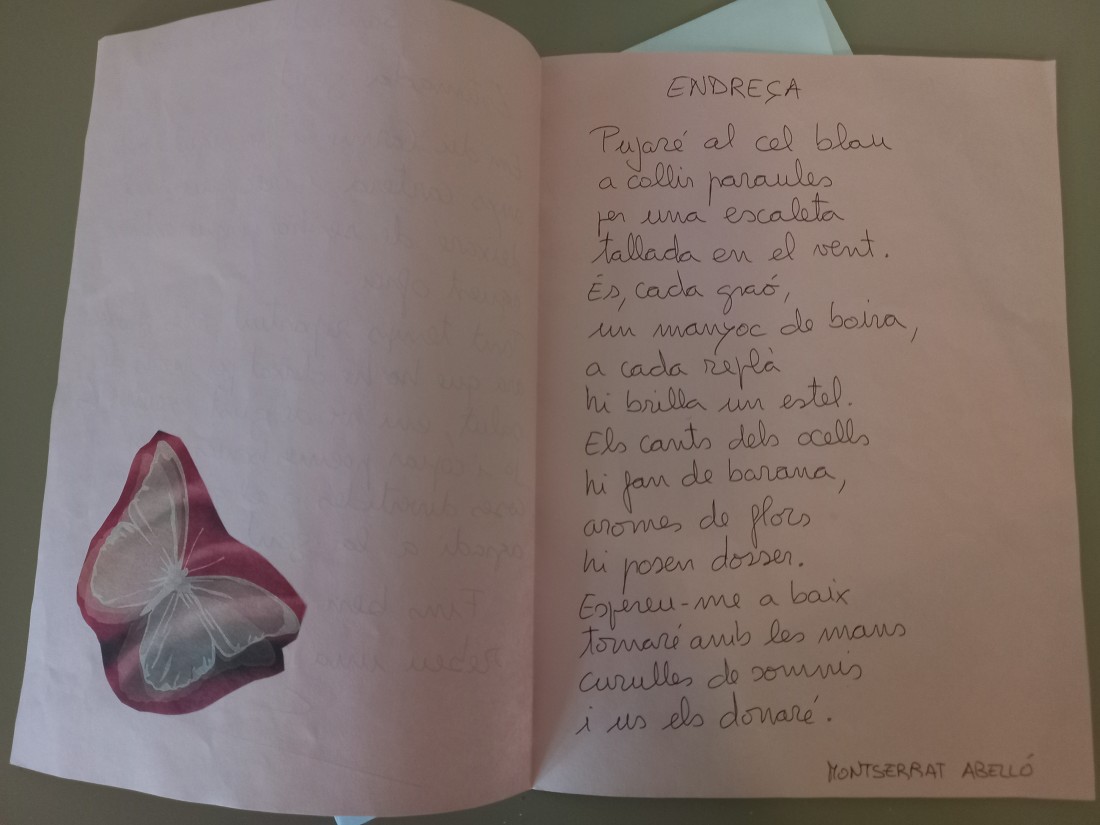 ENDREÇA
Pujaré al cel blau
a collir paraules
per una escaleta
tallada en el vent.
És, cada graó,
un manyoc de boira,
a cada replà
hi brilla un estel.
Els cants dels ocells
hi fan de barana,
aromes de flors
hi posen dosser.
Espereu-me a baix
tornaré amb les mans
curulles de somnis
i us els donaré.
MONTSERRAT ABELLÓ